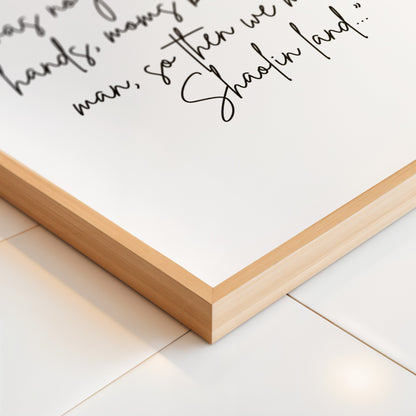 was no
hands, moms
man, so then we
Shaolin land..."